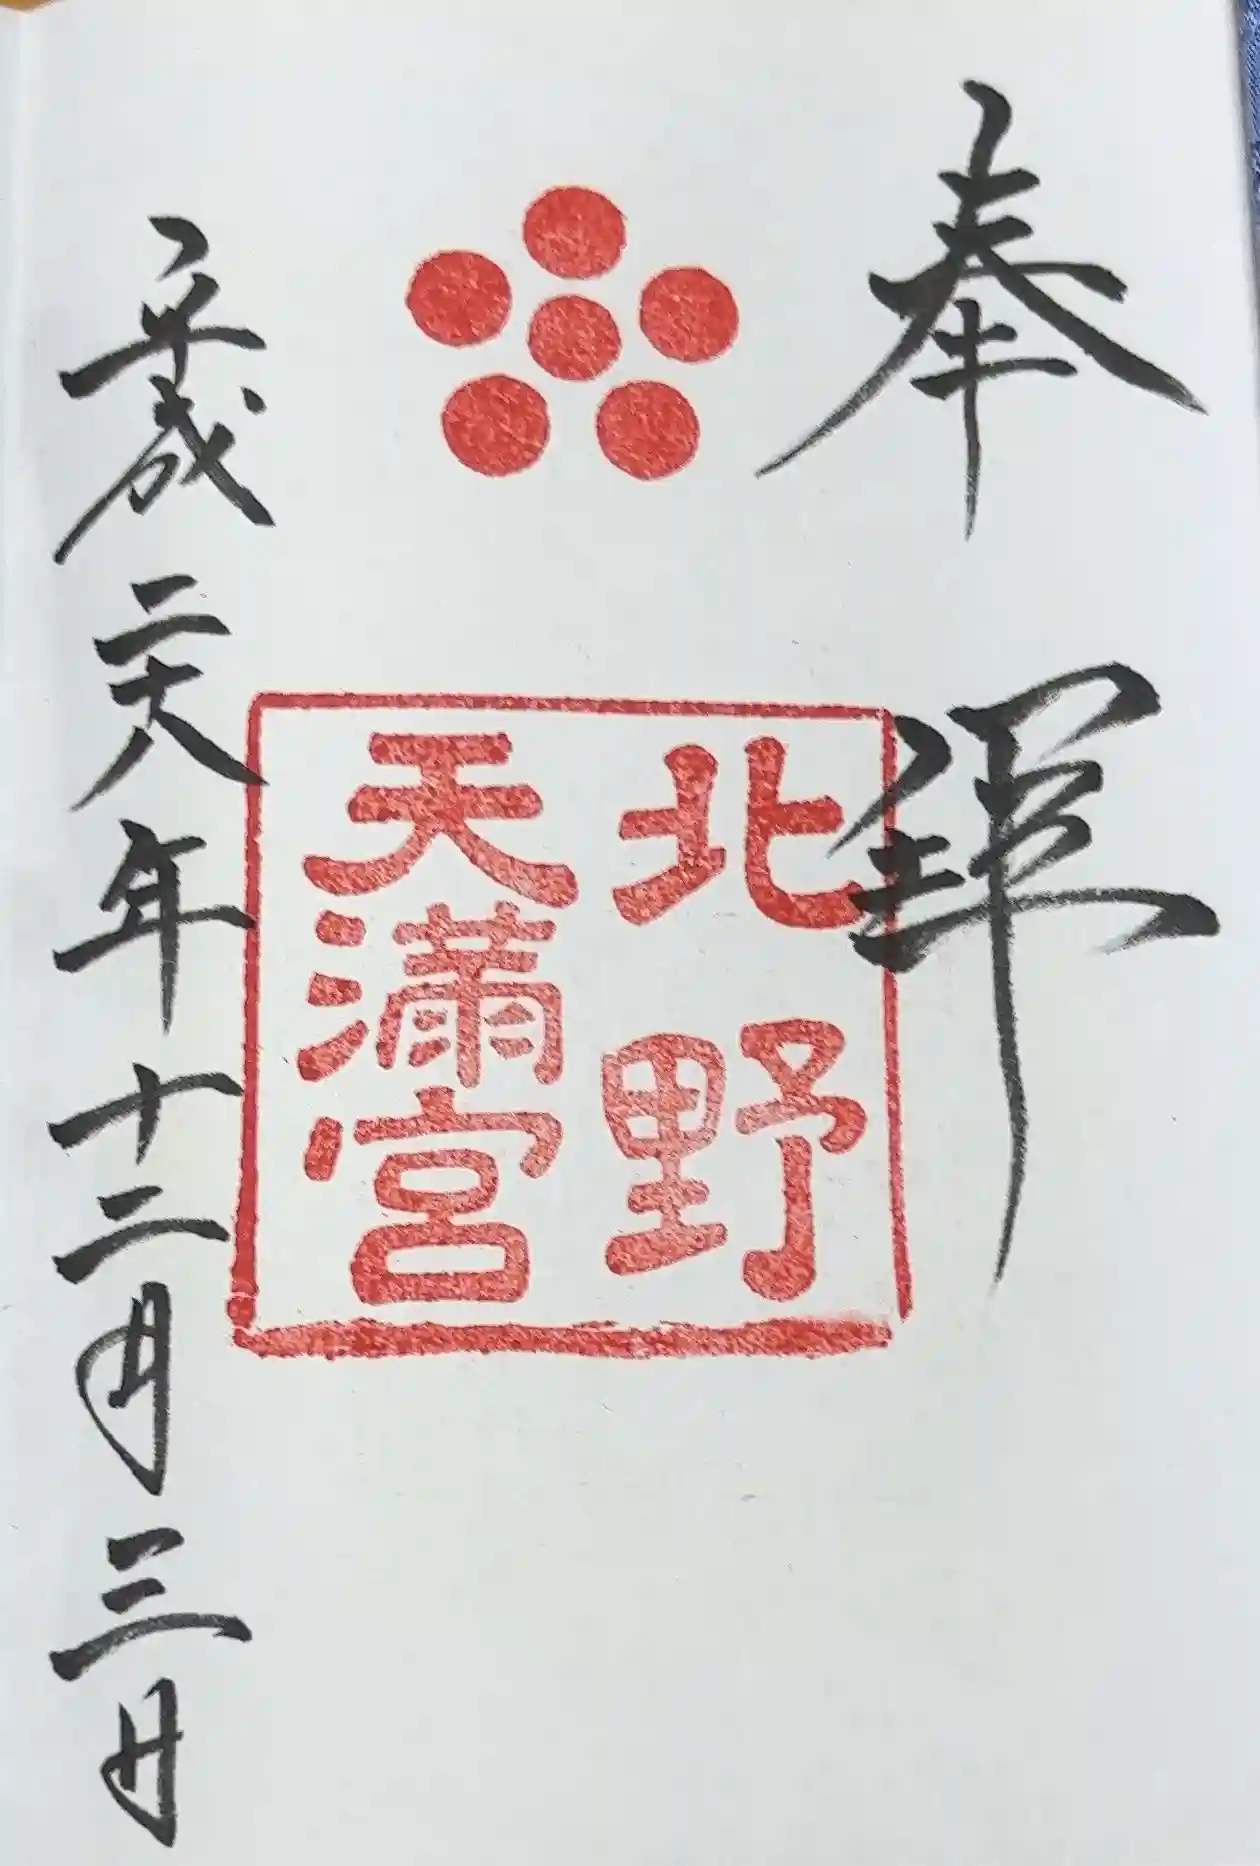 奉拝
北野
天滿宮
平成二十八年十二月三日